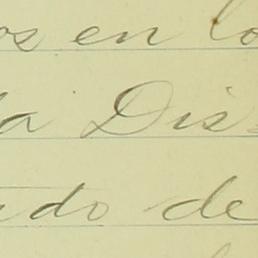 os en lo
a Dis
ado de